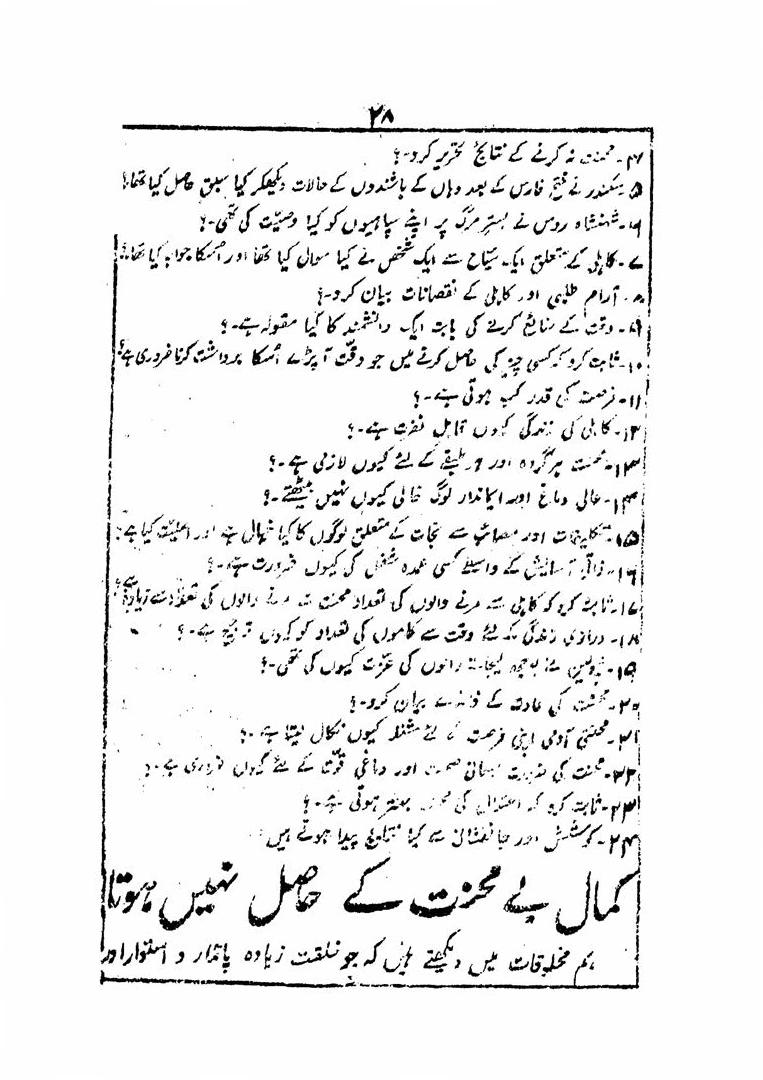 ۲۸
۴۔ محنت نہ کرنے کے نتائج تحریر کرو۔؟
۵۔ سکندر نے فتح فارس کے بعد وہاں کے باشندوں کے حالات دیکھکر کیا سبق حاصل کیا تھا۔؟
۶۔ شہنشاہ روس نے بستر مرگ پر اپنے سپاہیوں کو کیا وصیّت کی تھی۔؟
۷۔ کاہلی کے متعلق ایک سیّاح سے ایک شخص نے کیا سوال کیا تھا اور اُسکا جواب کیا تھا۔؟
۸۔ آرام طلبی اور کاہلی کے نقصانات بیان کرو۔؟
۹۔ وقت کے ضائع کرنے کی بابت ایک دانشمند کا کیا مقولہ ہے۔؟
۱۰۔ ثابت کرو کہ کسی چیز کی حاصل کرنے میں جو دقّت آ پڑے اُسکا برداشت کرنا ضروری ہے؟
۱۱۔ فرصت کی قدر کب ہوتی ہے۔؟
۱۲۔ کاہلی کی زندگی کیوں قابل نفرت ہے۔؟
۱۳۔ محنت ہر گروہ اور ہر طبقے کے لئے کیوں لازمی ہے۔؟
۱۴۔ عالی دماغ اور ایماندار لوگ خالی کیوں نہیں بیٹھتے۔؟
۱۵۔ تکلیفات اور مصائب سے نجات کے متعلق لوگوں کا کیا خیال ہے اور اصلیت کیا ہے؟
۱۶۔ ذاتی آسایش کے واسطے کسی عمدہ شغل کی کیوں ضرورت ہے۔؟
۱۷۔ ثابت کرو کہ کاہلی سے مرنے والوں کی تعداد محنت سے مرنے والوں کی تعداد سے زیادہ ہے؟
۱۸۔ درازی زندگی کے لئے وقت سے کاموں کی تعداد کو کیوں ترجیح ہے۔؟
۱۹۔ نپولین نے بوجھ لیجانے والوں کی عزّت کیوں کی تھی۔؟
۲۰۔ محنت کی عادت کے فائدے بیان کرو۔؟
۲۱۔ محنتی آدمی اپنی فرصت کے لئے مشغلہ کیوں نکال لیتا ہے۔؟
۲۲۔ محنت کی جسمانی صحت اور دماغی قوّت کے لئے کیوں ضروری ہے۔؟
۲۳۔ ثابت کرو کہ اعتدال کی محنت بہتر ہوتی ہے۔؟
۲۴۔ کوشش اور جانفشانی سے کیا نتایج پیدا ہوتے ہیں؟
کمال بے محنت کے حاصل نہیں ہوتا
ہم مخلوقات میں دیکھتے ہیں کہ جو خلقت زیادہ پائدار و استوار اور